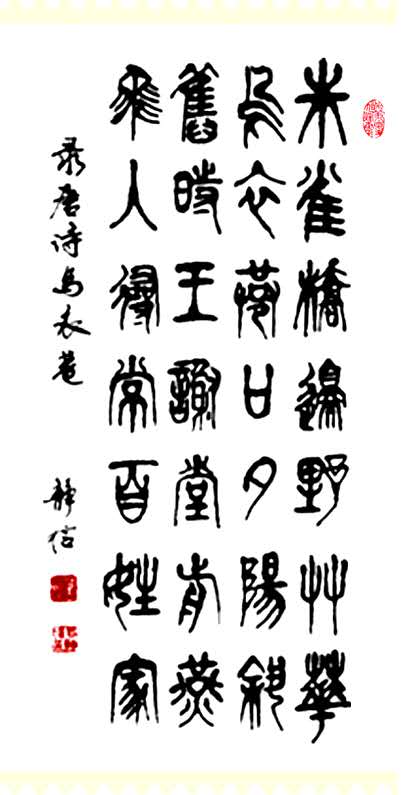 朱雀橋邊野艸華
烏衣巷口夕陽斜
舊時王謝堂前燕
飛入尋常百姓家
录唐诗乌衣巷
静